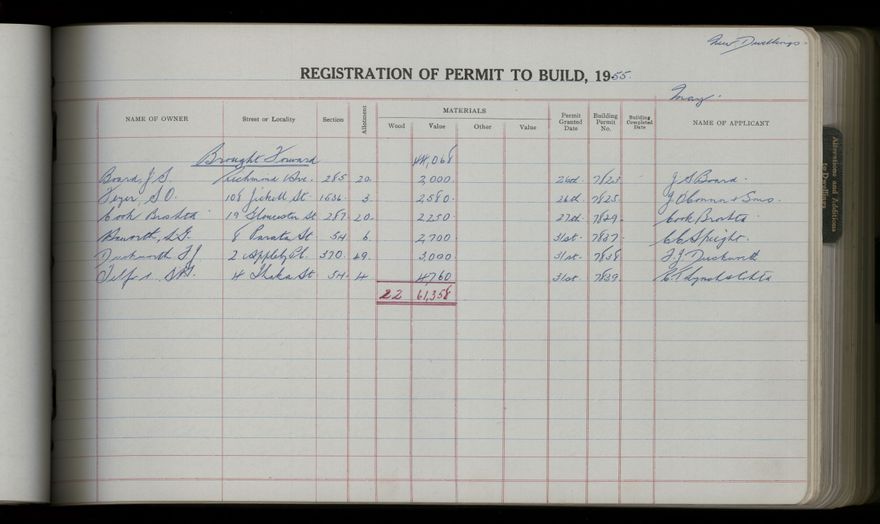 New Dwellings.
REGISTRATION OF PERMIT TO BUILD, 1955.
May.
NAME OF OWNER Street or Locality Section Allotment MATERIALS Wood Value Other Value Permit Granted Date Building Permit No. Building Completed Date NAME OF APPLICANT
Brought Forward 44,068
Board, J S. Richmond Ave. 285 20. 2,000. 26th. 7823. J S Board.
S O. 108 St 1636. 3. 2,580. 26th. 7825. J O'Connor & Sons.
Cook Brothers 19 Gloucester St 287. 20. 2250. 27th. 7829. Cook Brothers.
8 Parata St. 54 6. 2,700 31st. 7837. Speight.
Duckworth F J 2 Appleby Pl. 370. 49. 3,000 31st. 7838 F. J Duckworth
4 Ihaka St 54. 4. 4760 31st. 7839.
22 61,358
Alterations and Additions
to Dwellings